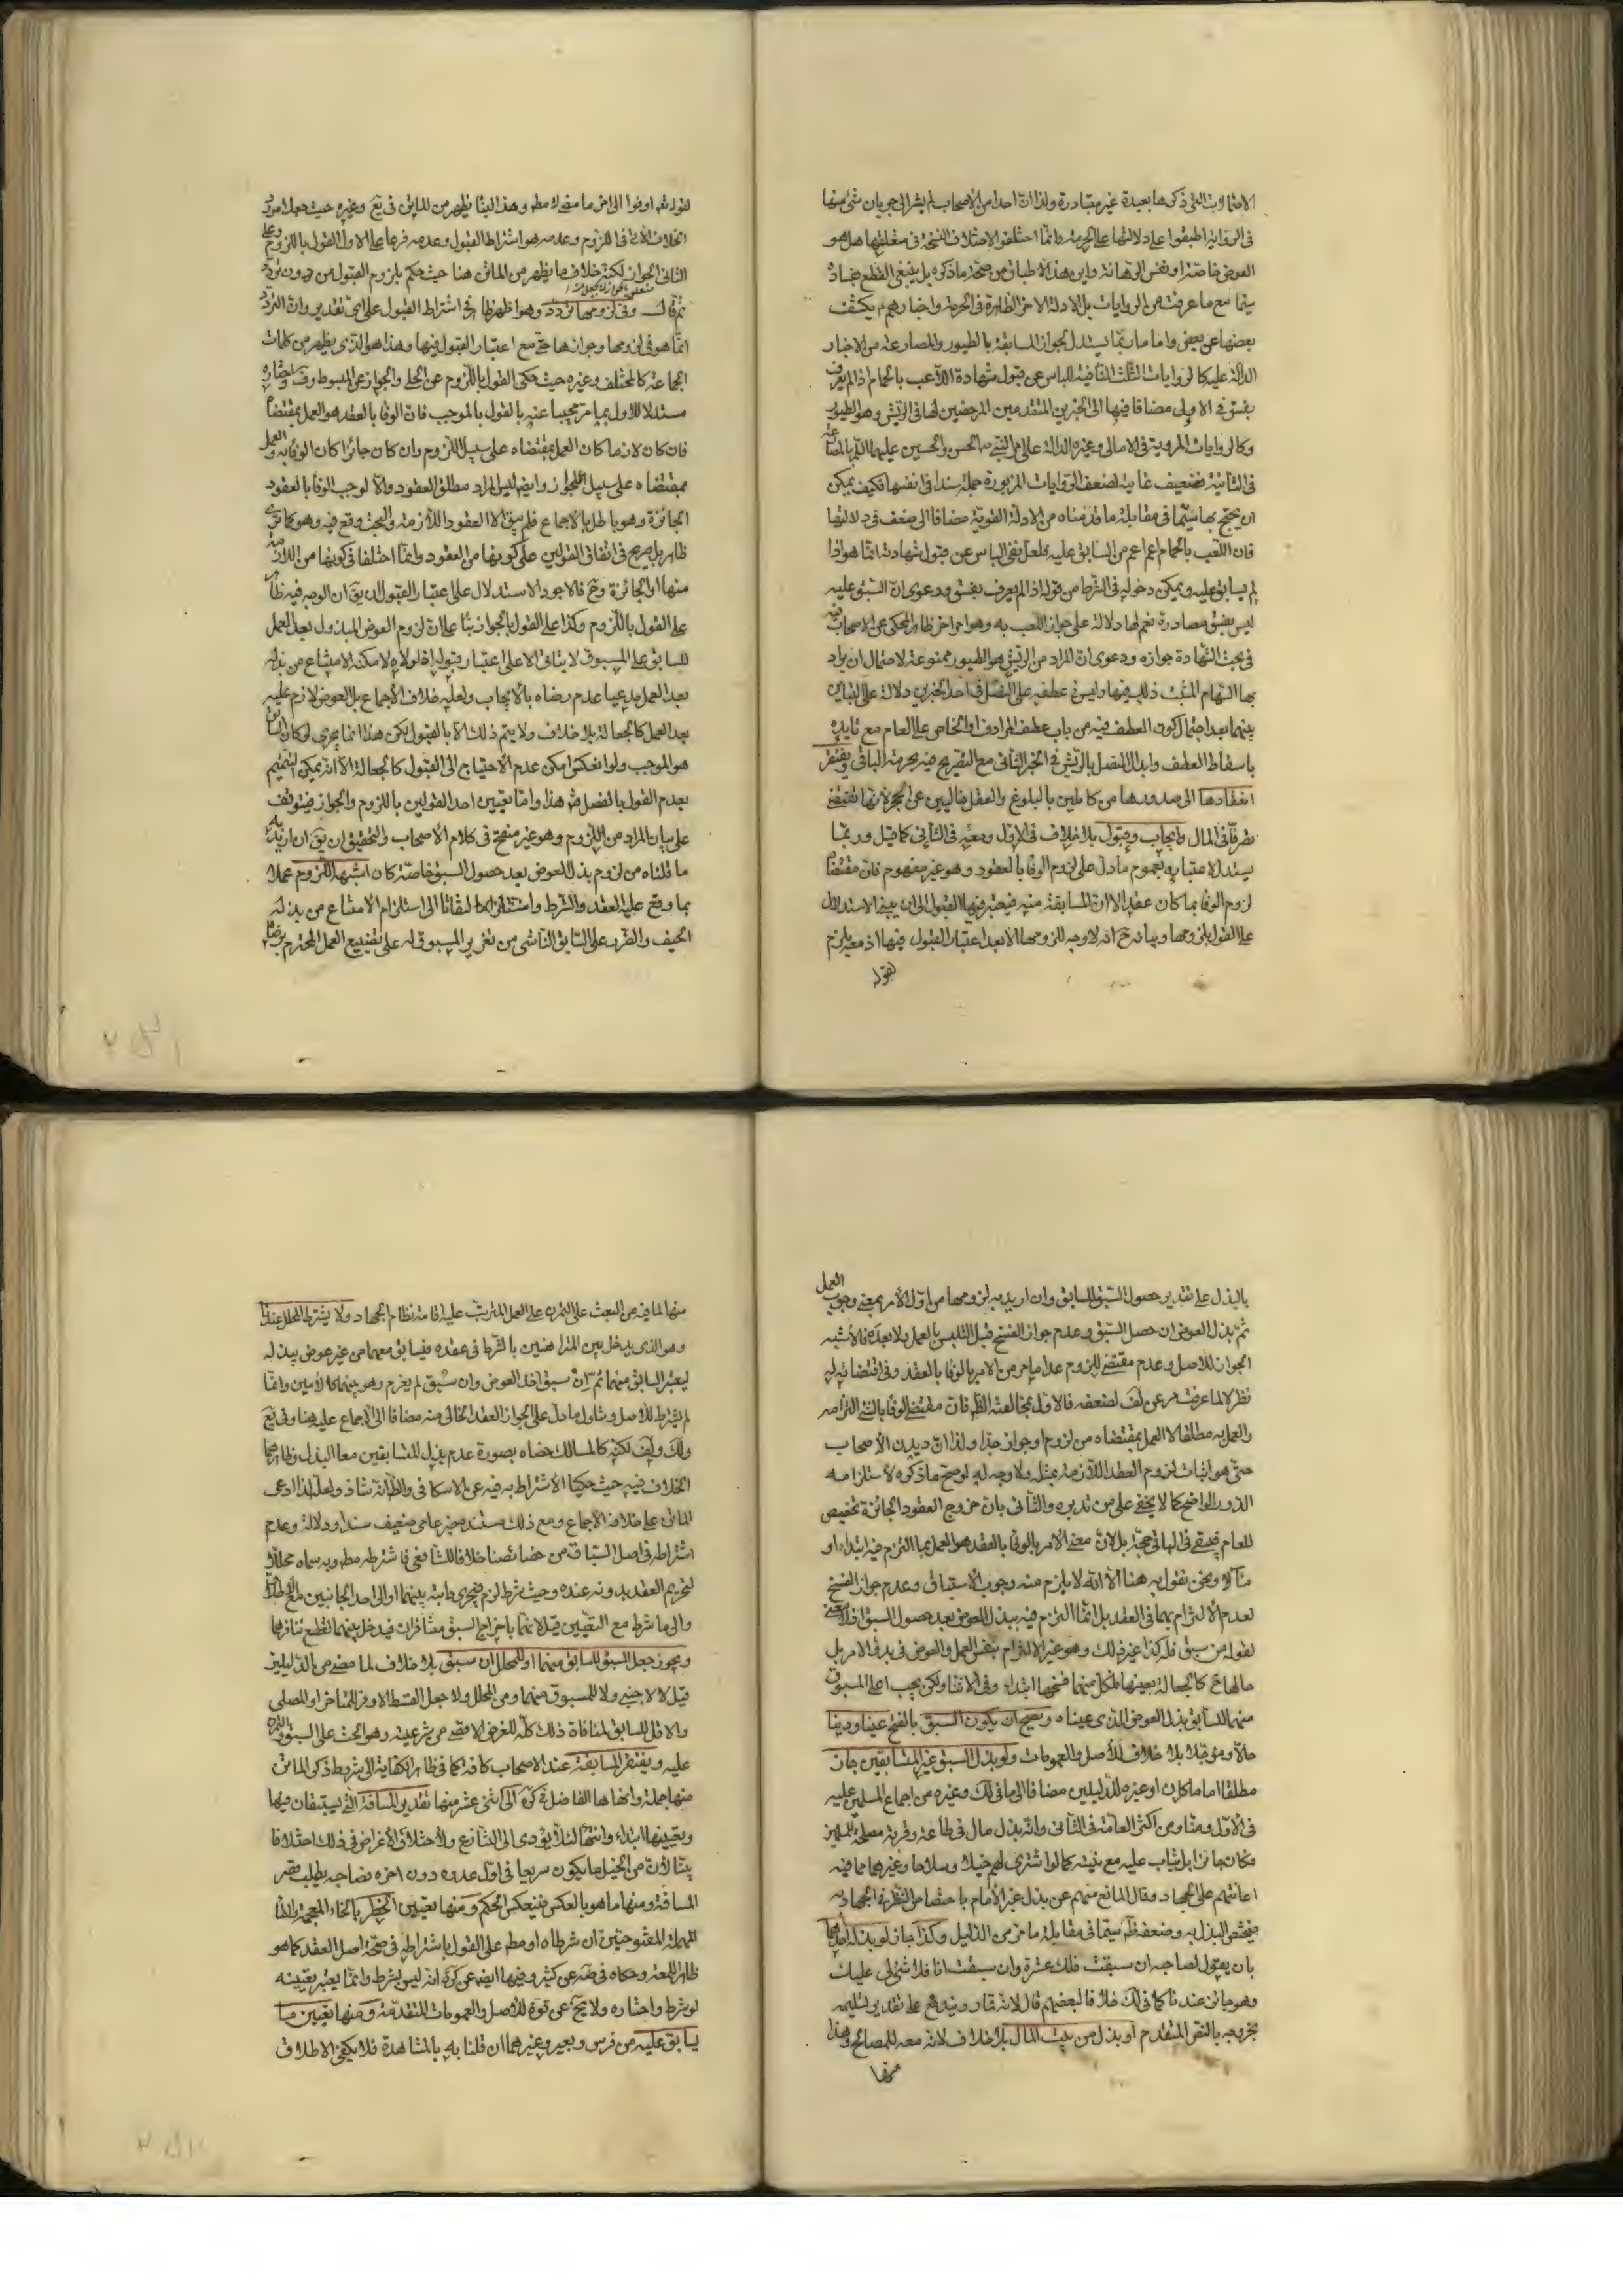 الاحتمالات التي ذكرها بعيدة غير متبادرة ولذا ان احدا من الاصحاب لم يشر الى جريان شئ منها
في الرواية اطبقوا على دلالتها على الحرمة وانما اختلفوا لاختلاف النسخة في متعلقها هل هو
العوض خاصة او نفس الرهانة واين هذا الاطباق من صحة ما ذكره بل ينبغي القطع بفساده
سيما مع ما عرفت من الروايات بل الادلة الاخر الظاهرة في الحرمة واخبارهم يكشف
بعضها عن بعض واما ما ربما يستدل لجواز المسابقة بالطيور والمصارعة من الاخبار
الدالة عليه كالروايات الثلث النافية للباس عن قبول شهادة اللاعب بالحمام اذا لم يعرف
بفسق في الاولى مضافا فيها الى الخبرين المتقدمين المرخصين لها في الريش وهو الطيور
وكالروايات المروية في الامالي وغيره الدالة على امر النبي ص الحسن والحسين عليهما السلام بالمصارعة
في الثانية فضعيف غاية لضعف الروايات المزبورة جملة سندا في انفسها فكيف يمكن
ان يحتج بها سيما في مقابلة ما قدمناه من الادلة القوية مضافا الى ضعف في دلالتها
فان اللعب بالحمام اعم من السابق عليه فلعل نفي الباس عن قبول شهادته انما هو اذا
لم يسابق عليه ويمكن دخوله في الشرط من قوله اذا لم يعرف بفسق ودعوى ان السبق عليه
ليس بفسق مصادرة نعم لها دلالة على جواز اللعب به وهو امر اخر ظاهر المحكي عن الاصحاب فيه
في بحث الشهادة جوازه ودعوى ان المراد من الريش هو الطيور ممنوعة لاحتمال ان يراد
بها السهام المثبت ذلك فيها وليس في عطفه على النصل في احد الخبرين دلالة على التباين
بينهما بعد احتمال كون العطف فيه من باب عطف المرادف او الخاص على العام مع تايده
باسقاط العطف وابدال النصل بالريش في الخبر الثاني مع التصريح فيه بحرمة الباقي ويفتقر
انعقادها الى صدورها من كاملين بالبلوغ والعقل خاليين عن الحجر لانها تقتضي
تصرفا في المال وايجاب وقبول بلا خلاف في الاول ومعه في الثاني كما قيل وربما
يستدل لاعتباره بعموم ما دل على لزوم الوفا بالعقود وهو غير مفهوم فان مقتضاه
لزوم الوفا بما كان عقدا الا ان المسابقة منه فيعتبر فيها القبول الى ان يبنى الاستدلال
على القول بلزومها وبيانه ح انه لا وجه للزومها الا بعد اعتبار القبول فيها اذ معه يلزم
لقوله
لقوله تعالى اوفوا الى اخر ما مضى لا مطلقا وهذا البنا يظهر من الماتن في يع وغيره حيث جعلا مورد
الخلاف الاتي في اللزوم وعدمه هو اشتراط القبول وعدمه فرعا على الاول القول باللزوم وعلى
الثاني الجواز لكنه خلاف ما يظهر من الماتن هنا حيث حكم بلزوم القبول من دون تردد
ثم قال وفي لزومها تردد وهو اظهر ظاهر في اشتراط القبول على اي تقدير وان التردد
انما هو في لزومها وجوازها حتى مع اعتبار القبول فيها وهذا هو الذي يظهر من كلمات
الجماعة كالمختلف وغيره حيث حكي القول باللزوم عن الحلي والجواز عن المبسوط وف واختاره
مستدلا للاول بما مر مجيبا عنه بالقول بالموجب فان الوفا بالعقد هو العمل بمقتضاه
فان كان لازما كان العمل بمقتضاه على سبيل اللزوم وان كان جائزا كان الوفا به والعمل
بمقتضاه على سبيل الجواز وايضا ليس المراد مطلق العقود والا لوجب الوفا بالعقود
الجائزة وهو باطل بالاجماع فلم يبق الا العقود اللازمة والبحث وقع فيه وهو كما ترى
ظاهر بل صريح في اتفاق القولين على كونها من العقود وانما اختلفا في كونها من اللازمة
منها او الجائزة وح فالاجود الاستدلال على اعتبار القبول ان يق ان الوجه فيه ظاهر
على القول باللزوم وكذا على القول بالجواز بناء على ان لزوم العوض المبذول بعد العمل
للسابق على المسبوق لا يتاتى الا على اعتبار قبوله اذ لولاه لامكنه الامتناع من بذله
بعد العمل مدعيا عدم رضاه بالايجاب ولعله خلاف الاجماع بل العوض لازم عليه
بعد العمل كالجعالة بلا خلاف ولا يتم ذلك الا بالقبول لكن هذا انما يجري لو كان السابق
هو الموجب ولو انعكس امكن عدم الاحتياج الى القبول كالجعالة الا انه يمكن التتميم
بعدم القول بالفصل هذا واما تعيين احد القولين باللزوم والجواز فيتوقف
على بيان المراد من اللزوم وهو غير منقح في كلام الاصحاب والتحقيق ان يق ان اريد به
ما قلناه من لزوم بذل العوض بعد حصول السبق خاصة كان اشبهه اللزوم عملا
بما وقع عليه العقد والشرط التفاتا الى استلزام الامتناع من بذله
الحيف والضرر على السابق الناشي من تغرير المسبوق له على تضييع العمل المحترم برضاه
بالبذل على تقدير حصول السبق للسابق وان اريد به لزومها من اول الامر بمعنى وجوب العمل
ثم بذل العوض ان حصل السبق وعدم جواز الفسخ قبل التلبس بالعمل ولا بعده فالاشبه
الجواز للاصل وعدم مقتض للزوم عدا ما مر من الامر بالوفا بالعقد وفي اقتضائه له
نظر لا لما عرفت من عن لف لضعفه فالاول بمخالفته الظاهر فان مقتضى الوفا بالشئ التزامه
والعمل به مطلقا لا العمل بمقتضاه من لزوم او جواز جدا ولذا ان ديدن الاصحاب
حتى هو اثبات لزوم العقد اللازمة بمثله ولا وجه له لو صح ما ذكره لاستلزامه
الدور الواضح كما لا يخفى على من تدبره والثاني بان خروج العقود الجائزة تخصيص
للعام فيبقى في الباقي حجة بل لان معنى الامر بالوفا بالعقد هو العمل بما التزم فيه ابتداء او
مآلا ونحن نقول به هنا الا انه لا يلزم منه وجوب الاستباق وعدم جواز الفسخ
لعدم الالتزام بهما في العقد بل انما التزم فيه ببذل العوض بعد حصول السبق اذ لا معنى
لقوله من سبق فله كذا غير ذلك وهو غير الالتزام بنفس العمل والعوض في بدو الامر بل
حالها ح كالجعالة بعينها لكل منهما فسخها ابتداء وفي الاثنا ولكن يجب على المسبوق
منهما للسابق بذل العوض الذي عيناه ويصح ان يكون السبق بالفتح عينا ودينا
حالا ومؤجلا بلا خلاف للاصل والعمومات ولو بذل السبق غير المتسابقين جاز
مطلقا اماما كان او غيره للدليلين مضافا الى ما في لك وغيره من اجماع المسلمين عليه
في الاول ومنا ومن اكثر العامة في الثاني وانه بذل مال في طاعة وقربة ومصلحة للمسلمين
فكان جائزا بل يثاب عليه مع نيته كما لو اشترى لهم خيلا وسلاحا وغيرهما مما فيه
اعانتهم على الجهاد وقال المانع منهم عن بذل غير الامام باختصاص النظر في الجهاد به
فيختص البذل به وضعفه ظاهر سيما في مقابلة ما مر من الدليل وكذا جاز لو بذله احدهما
بان يقول لصاحبه ان سبقت فلك عشرة وان سبقت انا فلا شئ لي عليك
وهو جائز عندنا كما في لك خلافا لبعضهم قال لانه قمار ويندفع على تقدير تسليمه
بخروجه بالنص المتقدم او بذل من بيت المال بلا خلاف لانه معد للمصالح وهذا
منها
منها لما فيه من البعث على التمرن على العمل المترتب عليه اقامة نظام الجهاد ولا يشترط المحلل عندنا
وهو الذي يدخل بين المتراهنين بالشرط في عقده فيسابق معهما من غير عوض يبذله
ليعتبر السابق منهما ثم ان سبق اخذ العوض وان سبق لم يغرم وهو بينهما كالامين وانما
لم يشترط للاصل وتناول ما دل على الجواز العقد الخالي منه مضافا الى الاجماع عليه هنا وفي يع
ولك ولف لكنه كالمسالك خصاه بصورة عدم بذل المتسابقين معا البذل وظاهرهما
الخلاف فيه حيث حكيا الاشتراط به فيه عن الاسكافي والظاهر انه شاذ ولعله لذا ادعى
الماتن على خلافه الاجماع ومع ذلك مستنده خبر عامي ضعيف سندا ودلالة وعدم
اشتراطه في اصل السباق من خصائصنا خلافا للشافعي فاشترطه مطلقا وبه سماه محللا
لتحريم العقد بدونه عنده وحيث شرط لزم فيجري دابته بينهما او الى احد الجانبين مع الاطلاق
والى ما شرط مع التعيين قيل لانهما باخراج السبق متنافران فيدخل بينهما لقطع تنافرهما
ويجوز جعل السبق للسابق منهما او للمحلل ان سبق بلا خلاف لما مضى من الدليلين
قيل لا لاجنبي ولا للمسبوق منهما ومن المحلل ولا جعل القسط الاوفر للمتاخر او للمصلي
والاقل للسابق لمنافاة ذلك كله للغرض الاقصى من شرعيته وهو الحث على السبق والتمرن
عليه ويفتقر المسابقة عند الاصحاب كافة كما في ظاهر الكفاية الى شروط ذكر الماتن
منها جملة وانهاها الفاضل في كره الى اثنى عشر منها تقدير المسافة التي يستبقان فيها
وتعيينها ابتداء وانتهاء لئلا يؤدي الى التنازع ولاختلاف الاغراض في ذلك اختلافا
بينا لان من الخيل ما يكون سريعا في اول عدوه دون اخره فصاحبه يطلب قصر
المسافة ومنها ما هو بالعكس فينعكس الحكم ومنها تعيين الخطر بالخاء المعجمة والطاء
المهملة المفتوحتين ان شرطاه او مطلقا على القول باشتراطه في صحة اصل العقد كما هو
ظاهر اللمعة وحكاه في ضه عن كثير وفيها ايضا عن كره انه ليس بشرط وانما يعتبر تعيينه
لو شرط واختاره ولا يخ عن قوة للاصل والعمومات المتقدمة ومنها تعيين ما
يسابق عليه من فرس وبعير وغيرهما ان قلنا به بالمشاهدة فلا يكفي الاطلاق